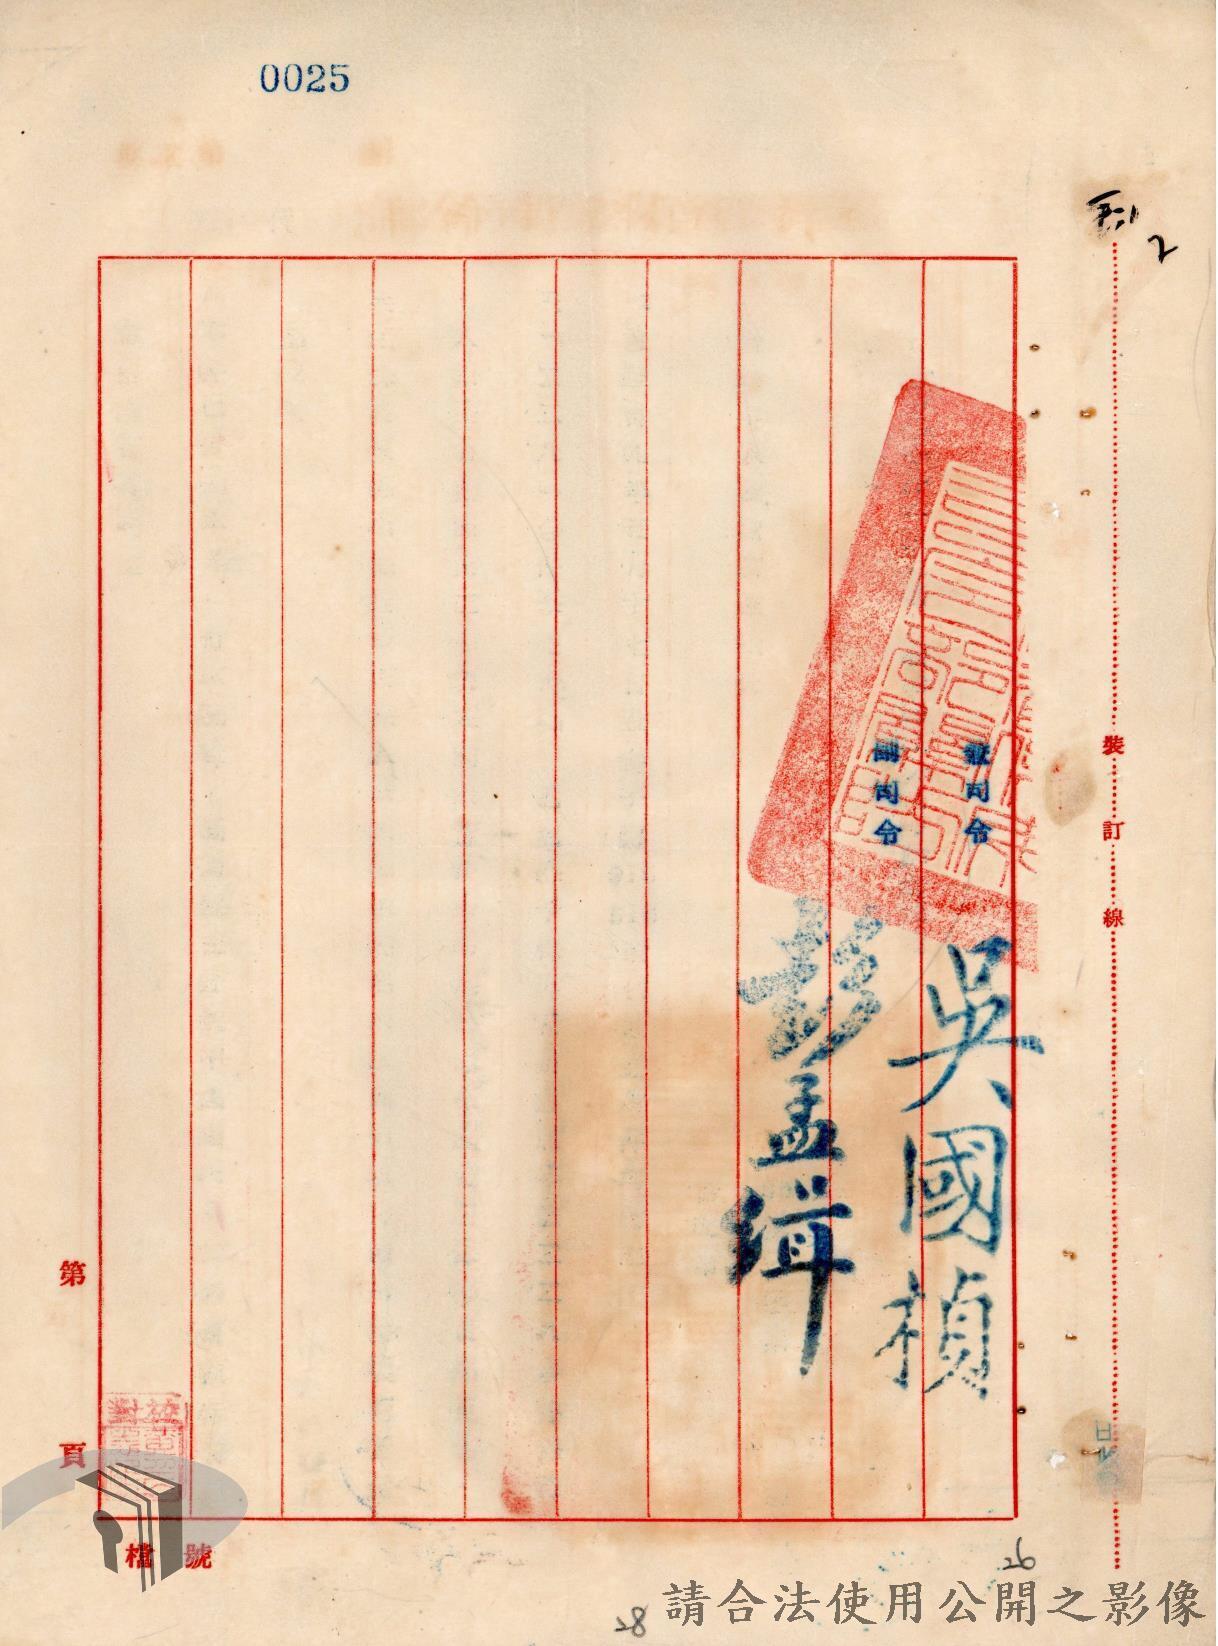 0025
兼司令 吳國楨
副司令 彭孟緝
裝訂線
第 頁
檔 號
26
28
請合法使用公開之影像